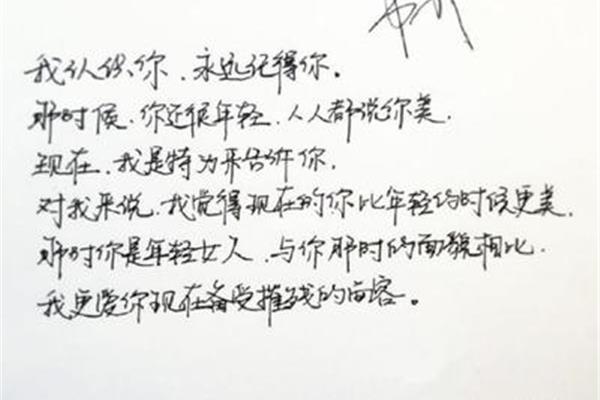 我认识你、永远记得你。
那时候、你还很年轻、人人都说你美、
现在、我是特为来告诉你、
对我来说、我觉得现在的你比年轻的时候更美、
那时你是年轻女人、与你那时的面貌相比、
我更爱你现在备受摧残的面容。